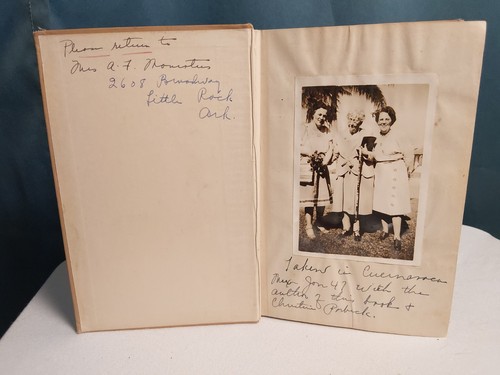 Please return to
Mrs A. F.
2608 Broadway
Little Rock
Ark.
Taken in Cuernavaca
Mex Jan 47 with the
author of this book &